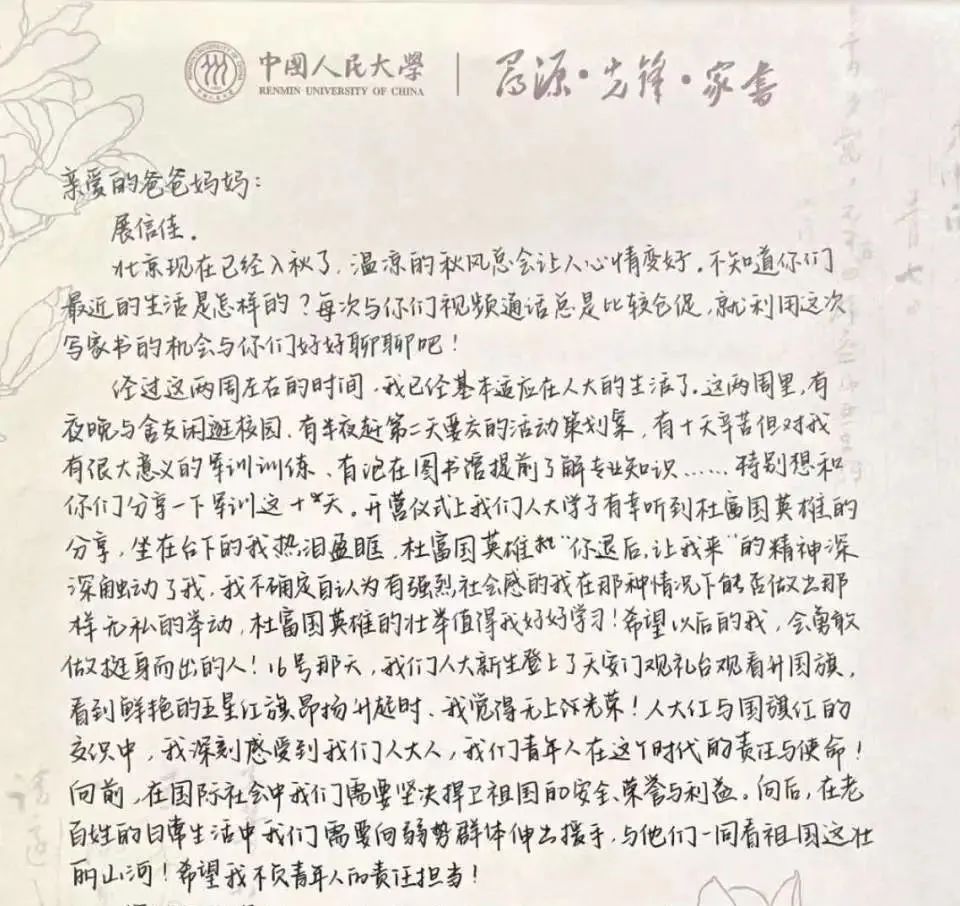 中國人民大學
RENMIN UNIVERSITY OF CHINA
尋源·先锋·家書
亲爱的爸爸妈妈：
展信佳。
北京现在已经入秋了，温凉的秋风总会让人心情变好。不知道你们
最近的生活是怎样的？每次与你们视频通话总是比较仓促，就利用这次
写家书的机会与你们好好聊聊吧！
经过这两周左右的时间，我已经基本适应在人大的生活了。这两周里，有
夜晚与舍友闲逛校园、有半夜赶第二天要交的活动策划案、有十天辛苦但对我
有很大意义的军训训练、有泡在图书馆提前了解专业知识……特别想和
你们分享一下军训这十天。开营仪式上我们人大学子有幸听到杜富国英雄的
分享，坐在台下的我热泪盈眶，杜富国英雄“你退后，让我来”的精神深
深触动了我，我不确定自认为有强烈社会感的我在那种情况下能否做出那
样无私的举动，杜富国英雄的壮举值得我好好学习！希望以后的我，会勇敢
做挺身而出的人！16号那天，我们人大新生登上了天安门观礼台观看升国旗，
看到鲜艳的五星红旗昂扬升起时、我觉得无上光荣！人大红与国旗红的
交织中，我深刻感受到我们人大人，我们青年人在这个时代的责任与使命！
向前，在国际社会中我们需要坚决捍卫祖国的安全、荣誉与利益。向后，在老
百姓的日常生活中我们需要向弱势群体伸出援手，与他们一同看祖国这壮
丽山河！希望我不负青年人的责任担当！